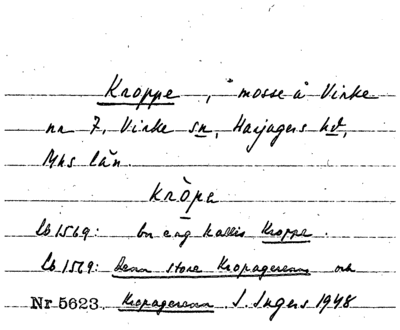 Kroppe, mosse å Virke
nr 7, Virke sn, Harjagers hd,
Mhs län.
kròpa
lb 1569: bn eng kallis Kroppe.
lb 1569: Denn store Kropageren och
Nr 5623. Kropageren J. Ingers 1948